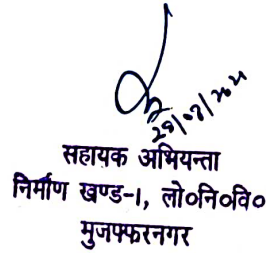 सहायक अभियन्ता
निर्माण खण्ड-I, लो०नि०वि०
मुजफ्फरनगर